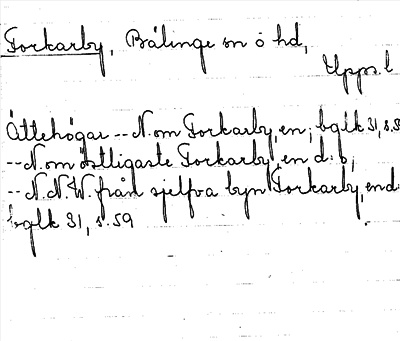 Forkarby, Bälinge sn o hd,
Upps. l
Ättehögar -- N. om Forkarby, en; bglk 31, s. 59
-- N. om östligaste Forkarby, en d:o;
-- N.N.W. från sjelfva byn Forkarby, en d:
bglk 31, s. 59